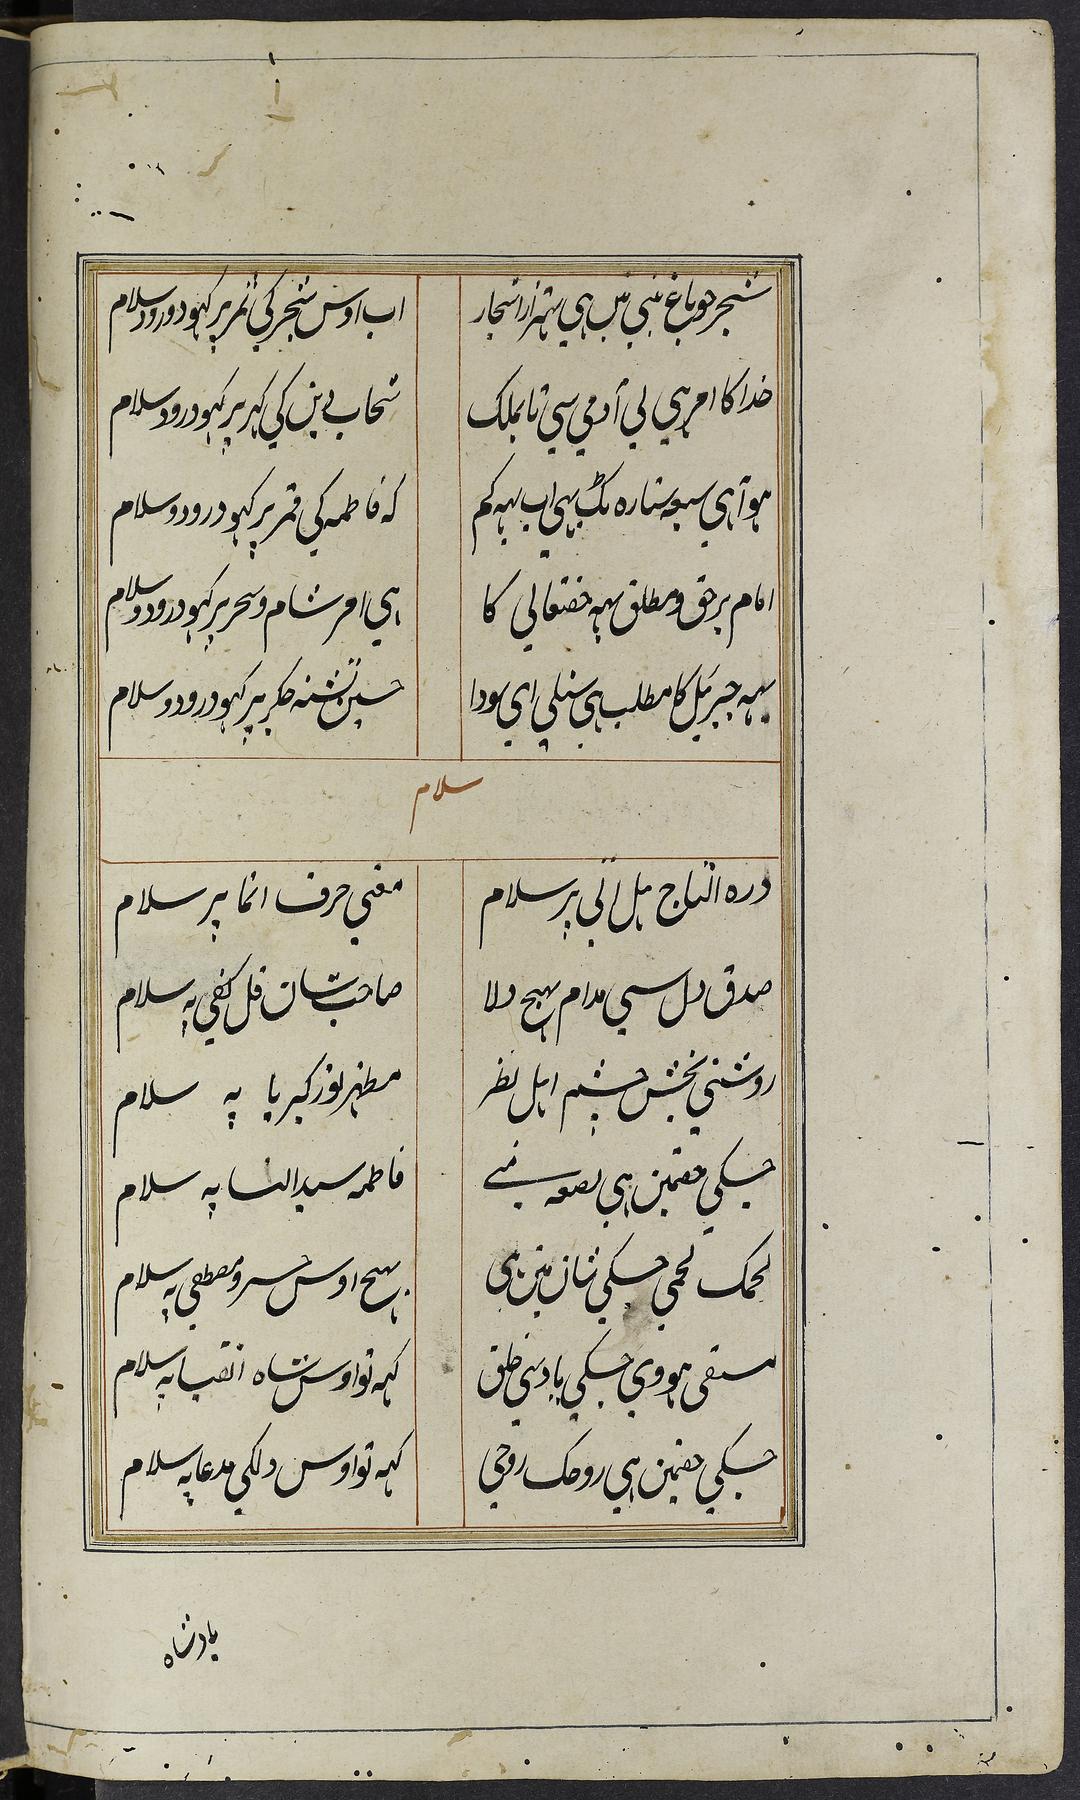 شجر جو باغ نبی میں ہی بہتر از اشجار اب اوس شجر کی ثمر پر کہو درود و سلام
خدا کا امر ہی لی آدمی سی تا بملک سحاب دین کی گہر پر کہو درود سلام
ہوا ہی سبعہ سیاره تک یہی اب یہہ حکم کہ فاطمہ کی قمر پر کہو درود و سلام
امام برحق و مطلق یہہ حقتعالی کا ہی امر شام و سحر پر کہو درود و سلام
یہہ جبرئیل کا مطلب ہی سنلی ای سودا حسین تشنہ جگر پر کہو درود و سلام
سلام
درة التاج ہل اتی پر سلام معنی حرف انما پر سلام
صدق دل سی مدام بہیج دلا صاحب شان قل کفی پہ سلام
روشنی بخش چشم اہل نظر مظہر نور کبریا پہ سلام
جسکی حقمین ہی بضعة منی فاطمہ سید النسا پہ سلام
لحمک لحمی جسکی شان مین ہی بہیج اوس خسرو مصطفی پہ سلام
متقی ہووی جسکی یاد سی خلق کہہ تو اوس شاہ اتقیا پہ سلام
جسکی حقمین ہی روحک روحی کہہ تو اوس دلکی مدعا پہ سلام
پادشاہ